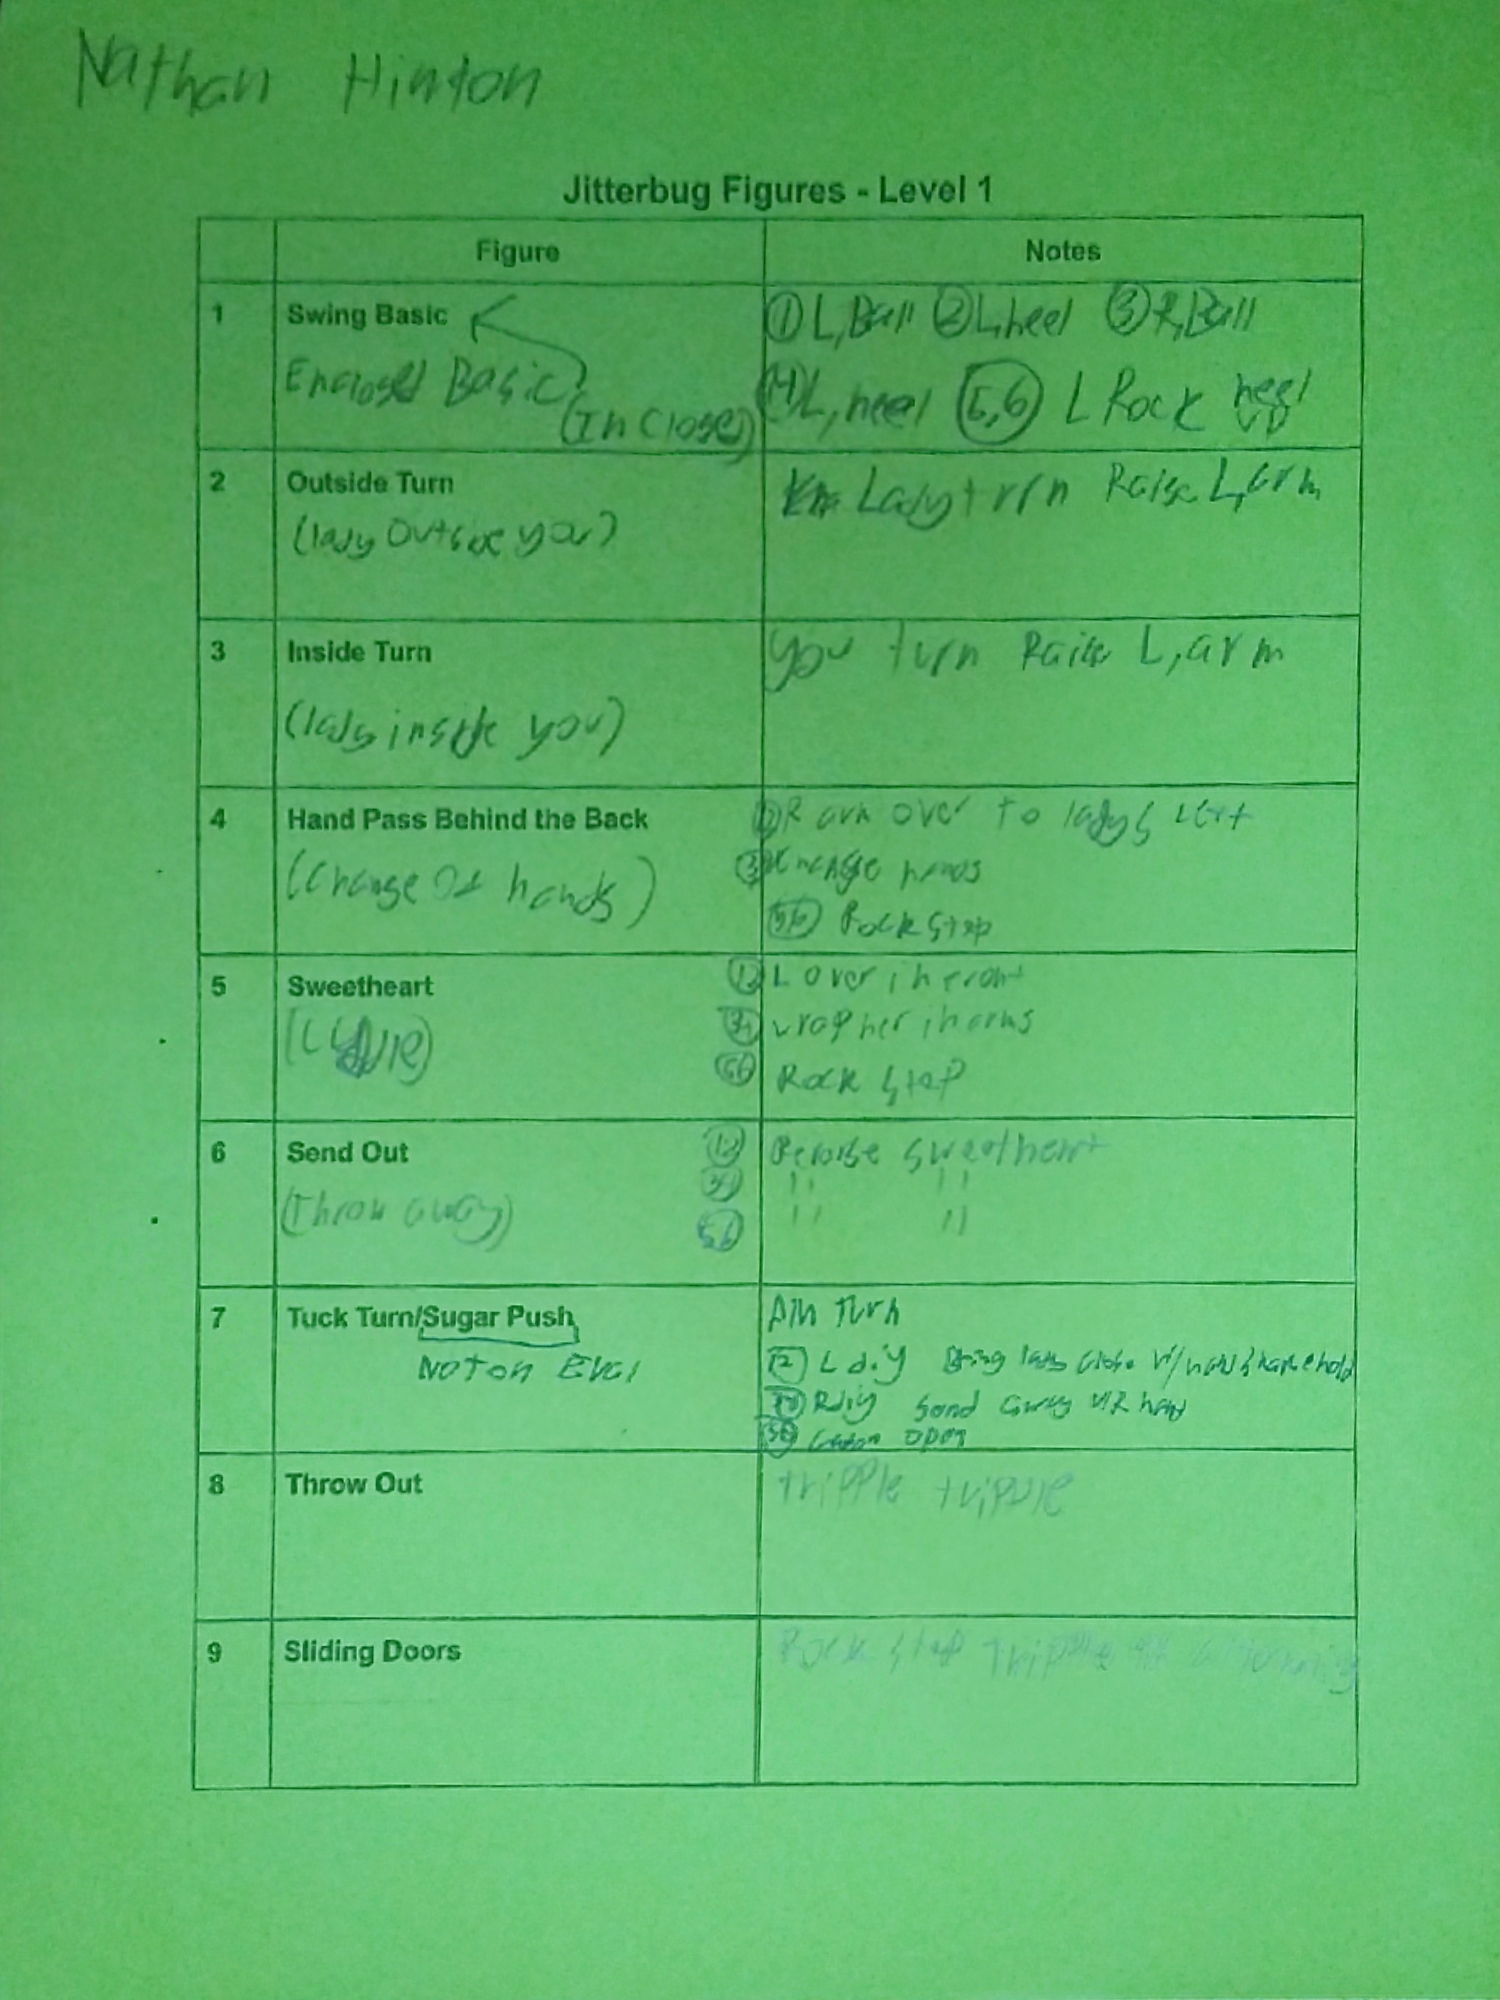 Nathan Hinton
Jitterbug Figures - Level 1
Figure Notes
1 Swing Basic
Enclosed Basic
(In Close)
① L, Ball ② L, heel ③ R, Ball
④ L, heel 5,6 L Rock heel
2 Outside Turn
(lady outside you)
Lady turn Raise L, arm
3 Inside Turn
(lady inside you)
you turn Raise L, arm
4 Hand Pass Behind the Back
(Change of hands)
R arm over to ladys left
hands
56 Rock Step
5 Sweetheart
12 L over in front
34 wrap her in arms
56 Rock step
6 Send Out
(Throw away)
12 sweetheart
34 " "
56 " "
7 Tuck Turn/Sugar Push
Not on Eval
Arm Turn
12 L diy Bring lady close w/ hand shake hold
34 R diy Send away w/R hand
56 open
8 Throw Out
tripple tripple
9 Sliding Doors
Rock step Tripple